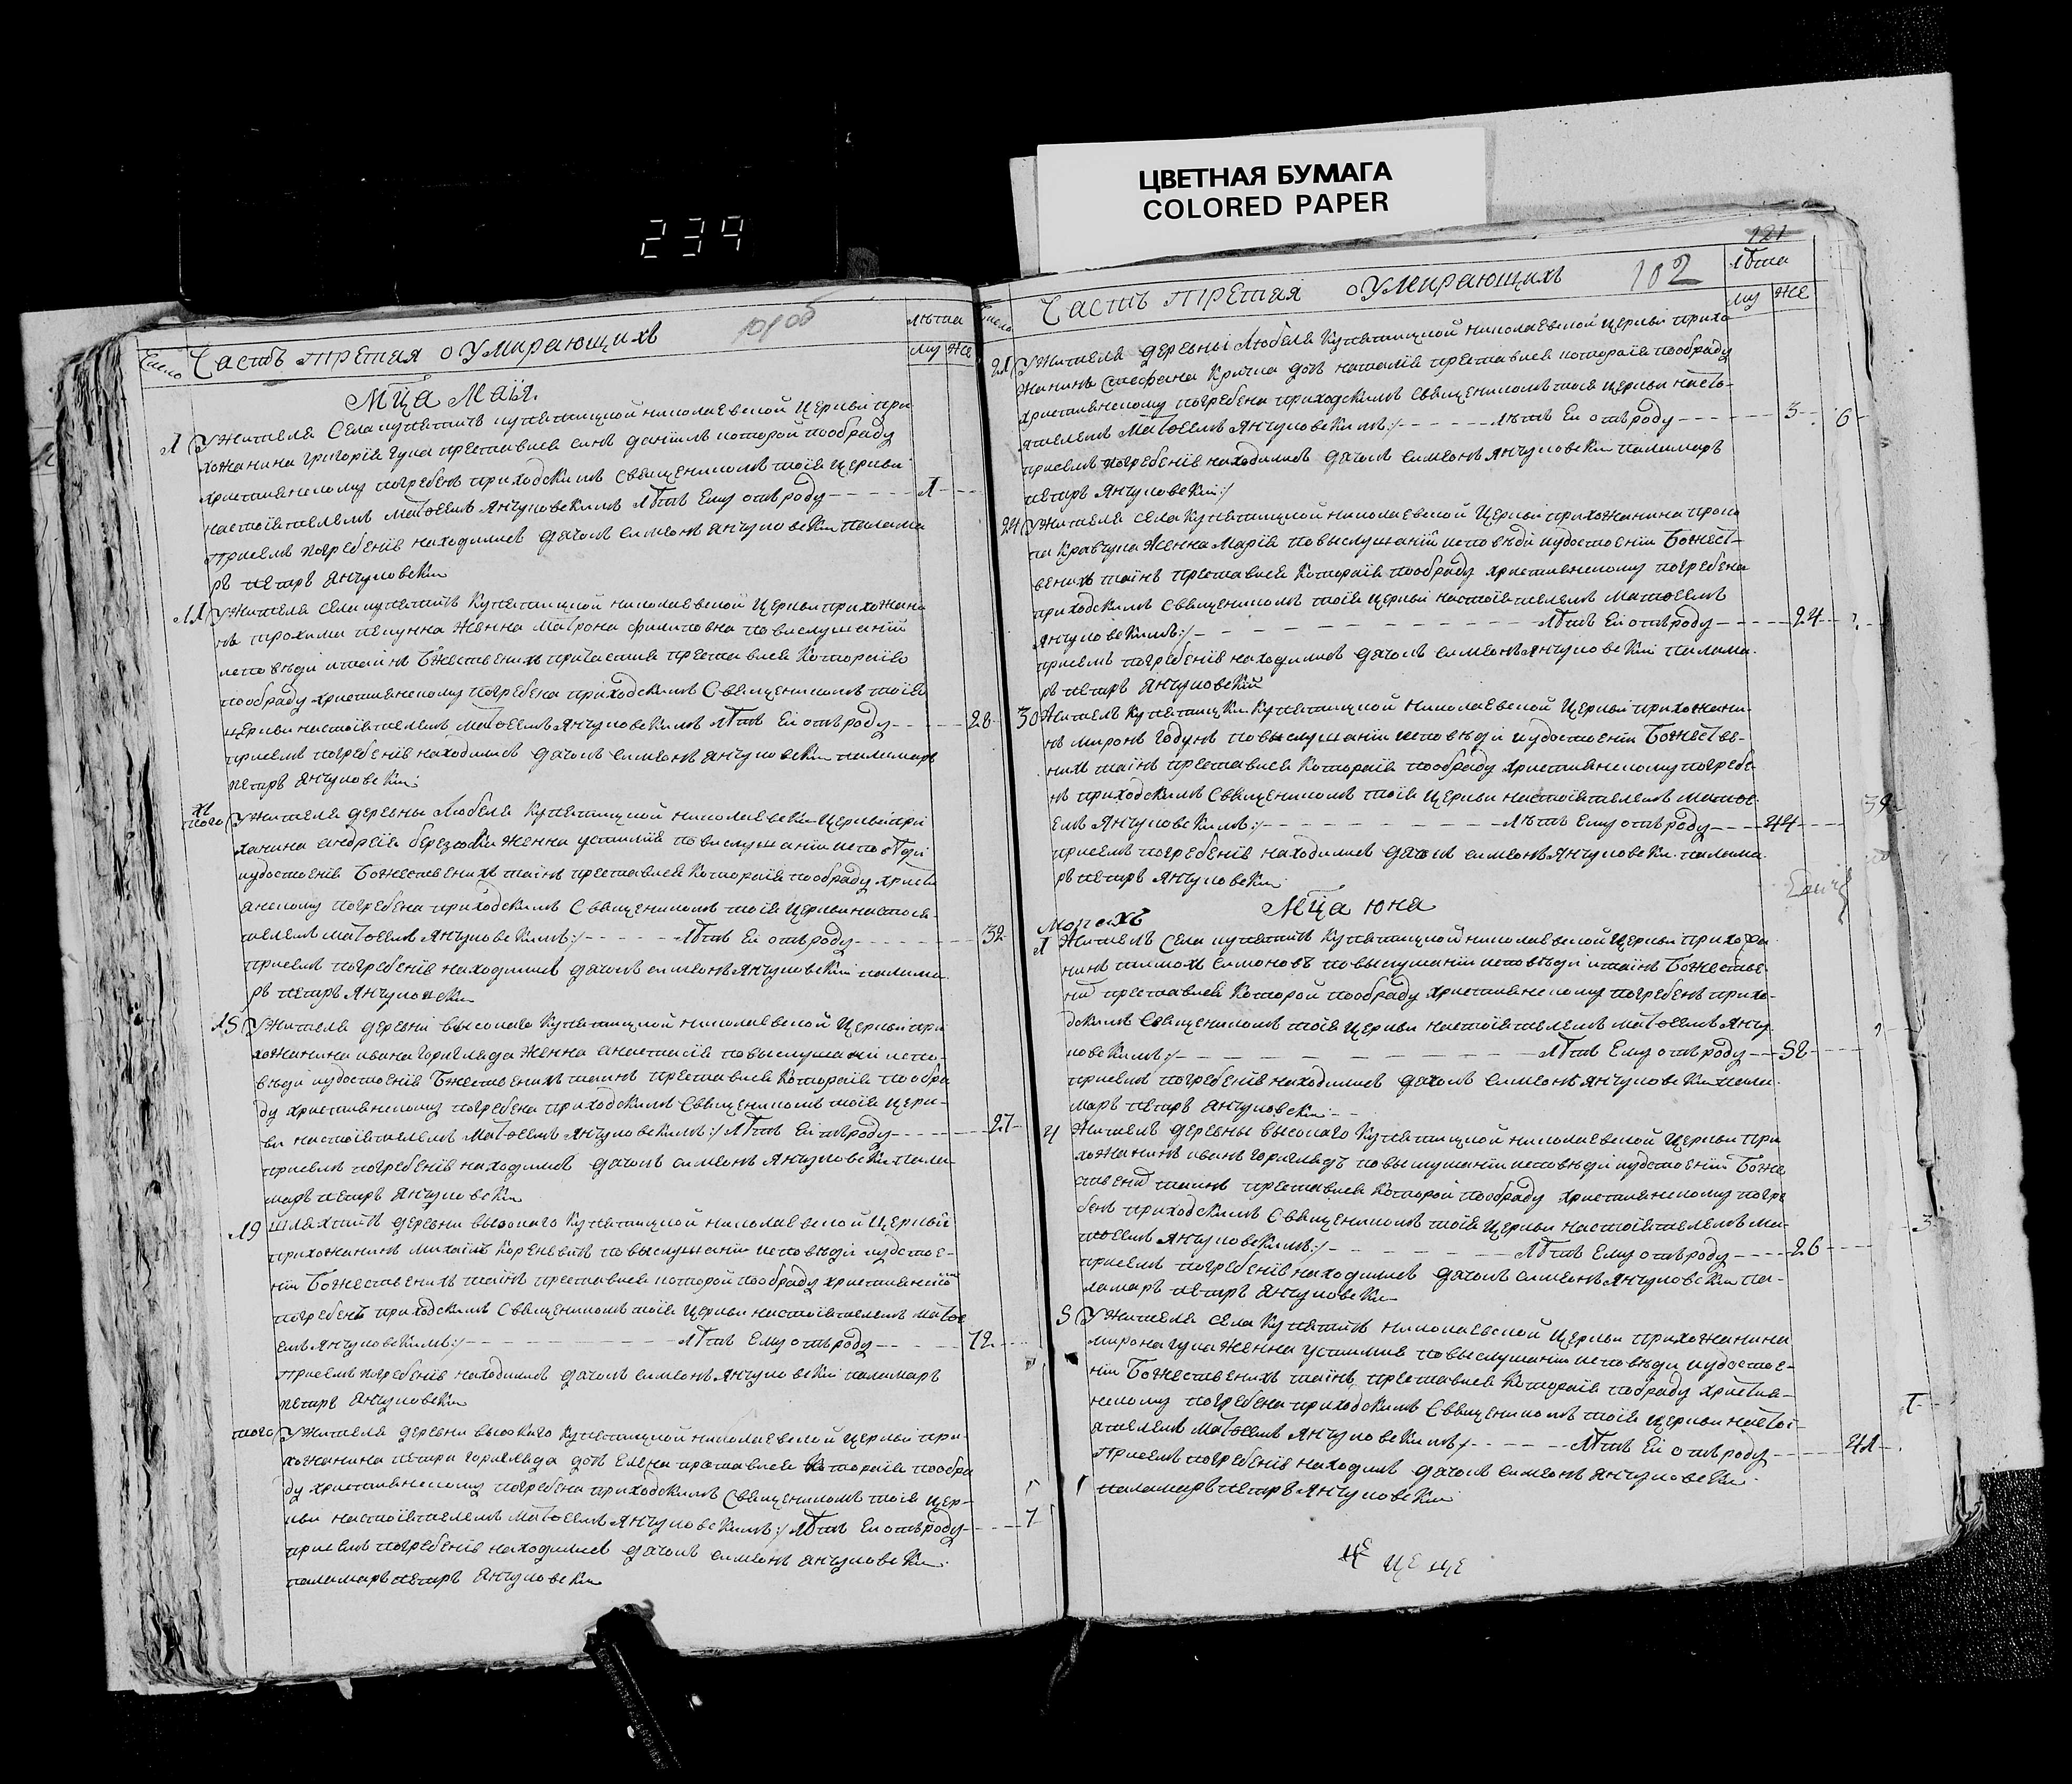 ЦВЕТНАЯ БУМАГА
COLORED PAPER
239
Число Часть третая о Умирающихъ 101 об
лѣта
му же
Мца Маїя.
1 У жителя Села купятичь купятицкой николаевской Церкви при
хожанина григорія гука преставися синъ даніилъ которой пообраду
християнскому погребенъ приходскимъ Священикомъ тоїя Церкви
настоїятелемъ Матѳеемъ Янчуковскимъ лѣтъ Ему отъ роду 1
Приемъ погребенїя находилися дячокъ симеонъ Янчуковскїи палама
ръ петръ Янчуковскїи
11 У жителя села купятичъ Купятицкой николаевской Церкви прихожани
нъ трохима жена Матрона филиповна повислушанїй
исповѣди итайнъ Бжественихъ причастия преставися Котораїя
пообраду християнскому погребена приходскимъ Священикомъ тоїя
церкви настоїятелемъ матѳеемъ Янчуковскимъ лѣтъ Ей отъ роду 28
приемъ погребенїя находилися дячокъ симеонъ Янчуковскїи паламаръ
петръ Янчуковскїи
того У жителя деревны Любеля Купятицкой николаевскїи Церкви при
ханина андрѣя жена устимїя повислушанїи исповѣди
иудостоенїя Божественихъ таїнъ преставися Котораїя пообраду христи
янскому погребена приходскимъ Священикомъ тоїя Церкви настоїя
телемъ матѳеемъ Янчуковскимъ:/ лѣтъ Ей отъ роду 32
приемъ погребенїя находилися дячокъ симеонъ Янчуковскїи палама
ръ петръ Янчуковскїи
15 У жителя деревнї високаго Купятицкой николаевской Церкви при
хожанина ивана горегляда жена анастасїя повыслушанїи испо
вѣди иудостоенїя Бжественихъ таинъ преставися Котораїя пообра
ду християнскому погребена приходскимъ Священикомъ тоїя церк
ви настоїятелемъ Матѳеемъ Янчуковскимъ:/ лѣтъ Ей отъ роду 27
приемъ погребенїя находилися дячокъ симеонъ Янчуковскїи пала
маръ петръ Янчуковскїи
19 шляхтичъ деревни високаго Купятицкой николаевской Церкви
прихожанинъ Михаїлъ Кореневичъ повыслушанїи исповѣди иудостое
нїи Божественихъ таїнъ преставися которой пообраду християнской
погребенъ приходскимъ Священикомъ тоїя Церкви настоїятелемъ матѳе
емъ Янчуковскимъ:/ лѣтъ Ему отъ роду 72
Приемъ погребенїя находилися дячокъ симеонъ Янчуковскїи паламаръ
петръ Янчуковскїи
того У жителя деревни високаго Купятицкой николаевской Церкви при
хожанина петра горегляда доч Елена преставися Котораїя пообра
ду християнскому погребена приходскимъ Священикомъ тоїя цер
кви настоїятелемъ Матѳеемъ Янчуковскимъ:/ лѣтъ Ей отъ роду 7
приемъ погребенїя находилися дячокъ симеонъ Янчуковскїи
паламаръ петръ Янчуковскїи
121
Число Часть третая о Умирающихъ 102
лѣта
му же
21 У жителя деревны Любеля Купятицкой николаевской Церкви прихо
жанинъ Стефана доч наталїя преставися котораїя пообраду
християнскому погребена приходскимъ Священикомъ тоїя Церкви насто
ятелемъ Матѳеемъ Янчуковскимъ:/ лѣтъ Ей отъ роду 3
приемъ погребенїя находилися дячокъ симеонъ Янчуковскїи паламаръ
петръ Янчуковскїи:/
24 У жителя села Купятицкой николаевской Церкви прихожанина
Кравчука жена Марїя повыслушанїй исповѣди иудостоенїи Божест
венихъ таїнъ преставися Котораїя пообраду християнскому погребена
приходскимъ Священикомъ тоїя церкви настоїятелемъ матѳеемъ
Янчуковскимъ:/ лѣтъ Ей отъ роду 24
приемъ погребенїя находилися дячокъ симеонъ Янчуковскїи палама
ръ петръ Янчуковскїй
30 Житель Купятицкой николаевской Церкви прихожани
нъ миронъ повыслушанїи исповѣди иудостоенїи Божестве
нихъ таїнъ преставися Котораїя пообраду християнскому погребе
нъ приходскимъ Священикомъ тоїя Церкви настоїятелемъ матѳе
емъ Янчуковскимъ:/ лѣтъ Ему отъ роду 44
приемъ погребенїя находилися дячокъ симеонъ Янчуковскїи палама
ръ петръ Янчуковскїи
Мца юна
1 Житель Села купятичъ Купятицкой николаевской Церкви прихожа
нинъ симоновъ повыслушанїи исповѣди итаїнъ Божестве
ни преставися Которой пообраду християнскому погребенъ прихо
дскимъ Священикомъ тоїя Церкви настоїятелемъ матѳеемъ Янчу
ковскимъ:/ лѣтъ Ему отъ роду 52
приемъ погребенїя находилися дячокъ симеонъ Янчуковскїи пала
маръ петръ Янчуковскїи
4 Житель деревны високаго Купятицкой николаевской Церкви при
хожанинъ иванъ гореглядъ повыслушанїи исповѣди иудостоенїи Боже
ствени таинъ преставися Которой пообраду християнскому погре
бенъ приходскимъ Священикомъ тоїя Церкви настоїятелемъ ма
тѳеемъ Янчуковскимъ:/ лѣтъ Ему отъ роду 26
приемъ погребенїя находилися дячокъ симеонъ Янчуковскїи па
ламаръ петръ Янчуковскїи
5 У жителя села Купятичъ николаевской Церкви прихожанина
мирона гука жена устимия повыслушанїи исповѣди иудостое
нїи Божественихъ таїнъ преставися Котораїя пообраду христия
нскому погребена приходскимъ Священикомъ тоїя Церкви настоі
ятелемъ Матѳеемъ Янчуковскимъ:/ лѣтъ Ей отъ роду 41
Приемъ погребенїя находилися дячокъ симеонъ Янчуковскїи
паламаръ петръ Янчуковскїи